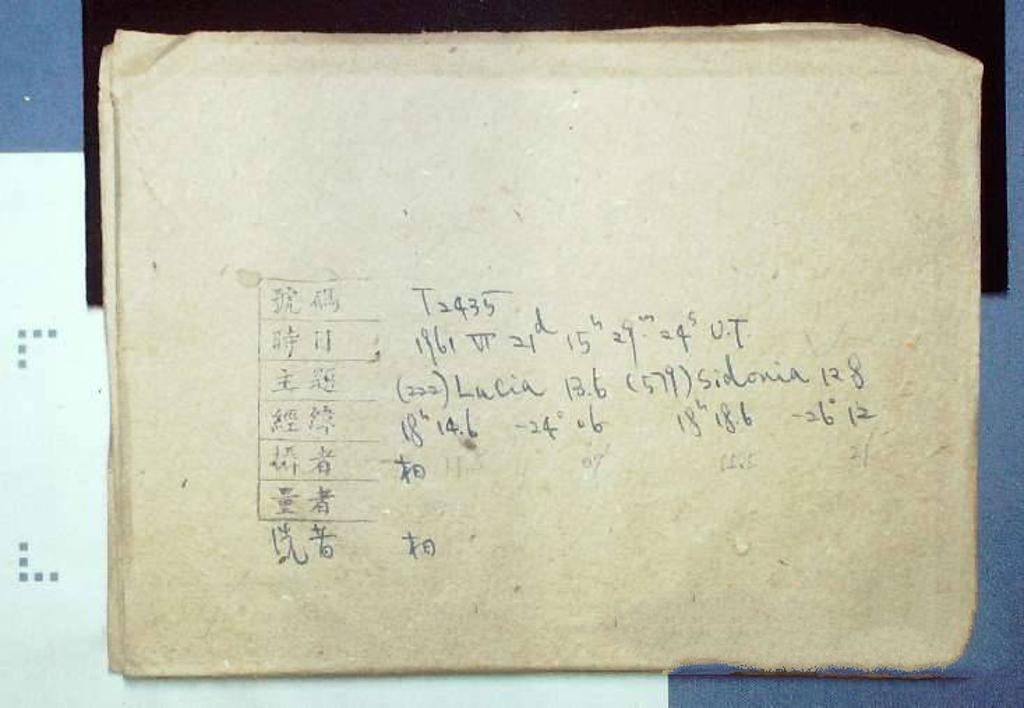 號碼 T2435
時日 1961 VI 21d 15h 29m 24s U.T.
主題 (222) Lucia 13.6 (579) Sidonia 12.8
經緯 18h 14.6 -24° 06 18h 18.6 -26° 12
攝者 相 07 21
量者
洗者 相